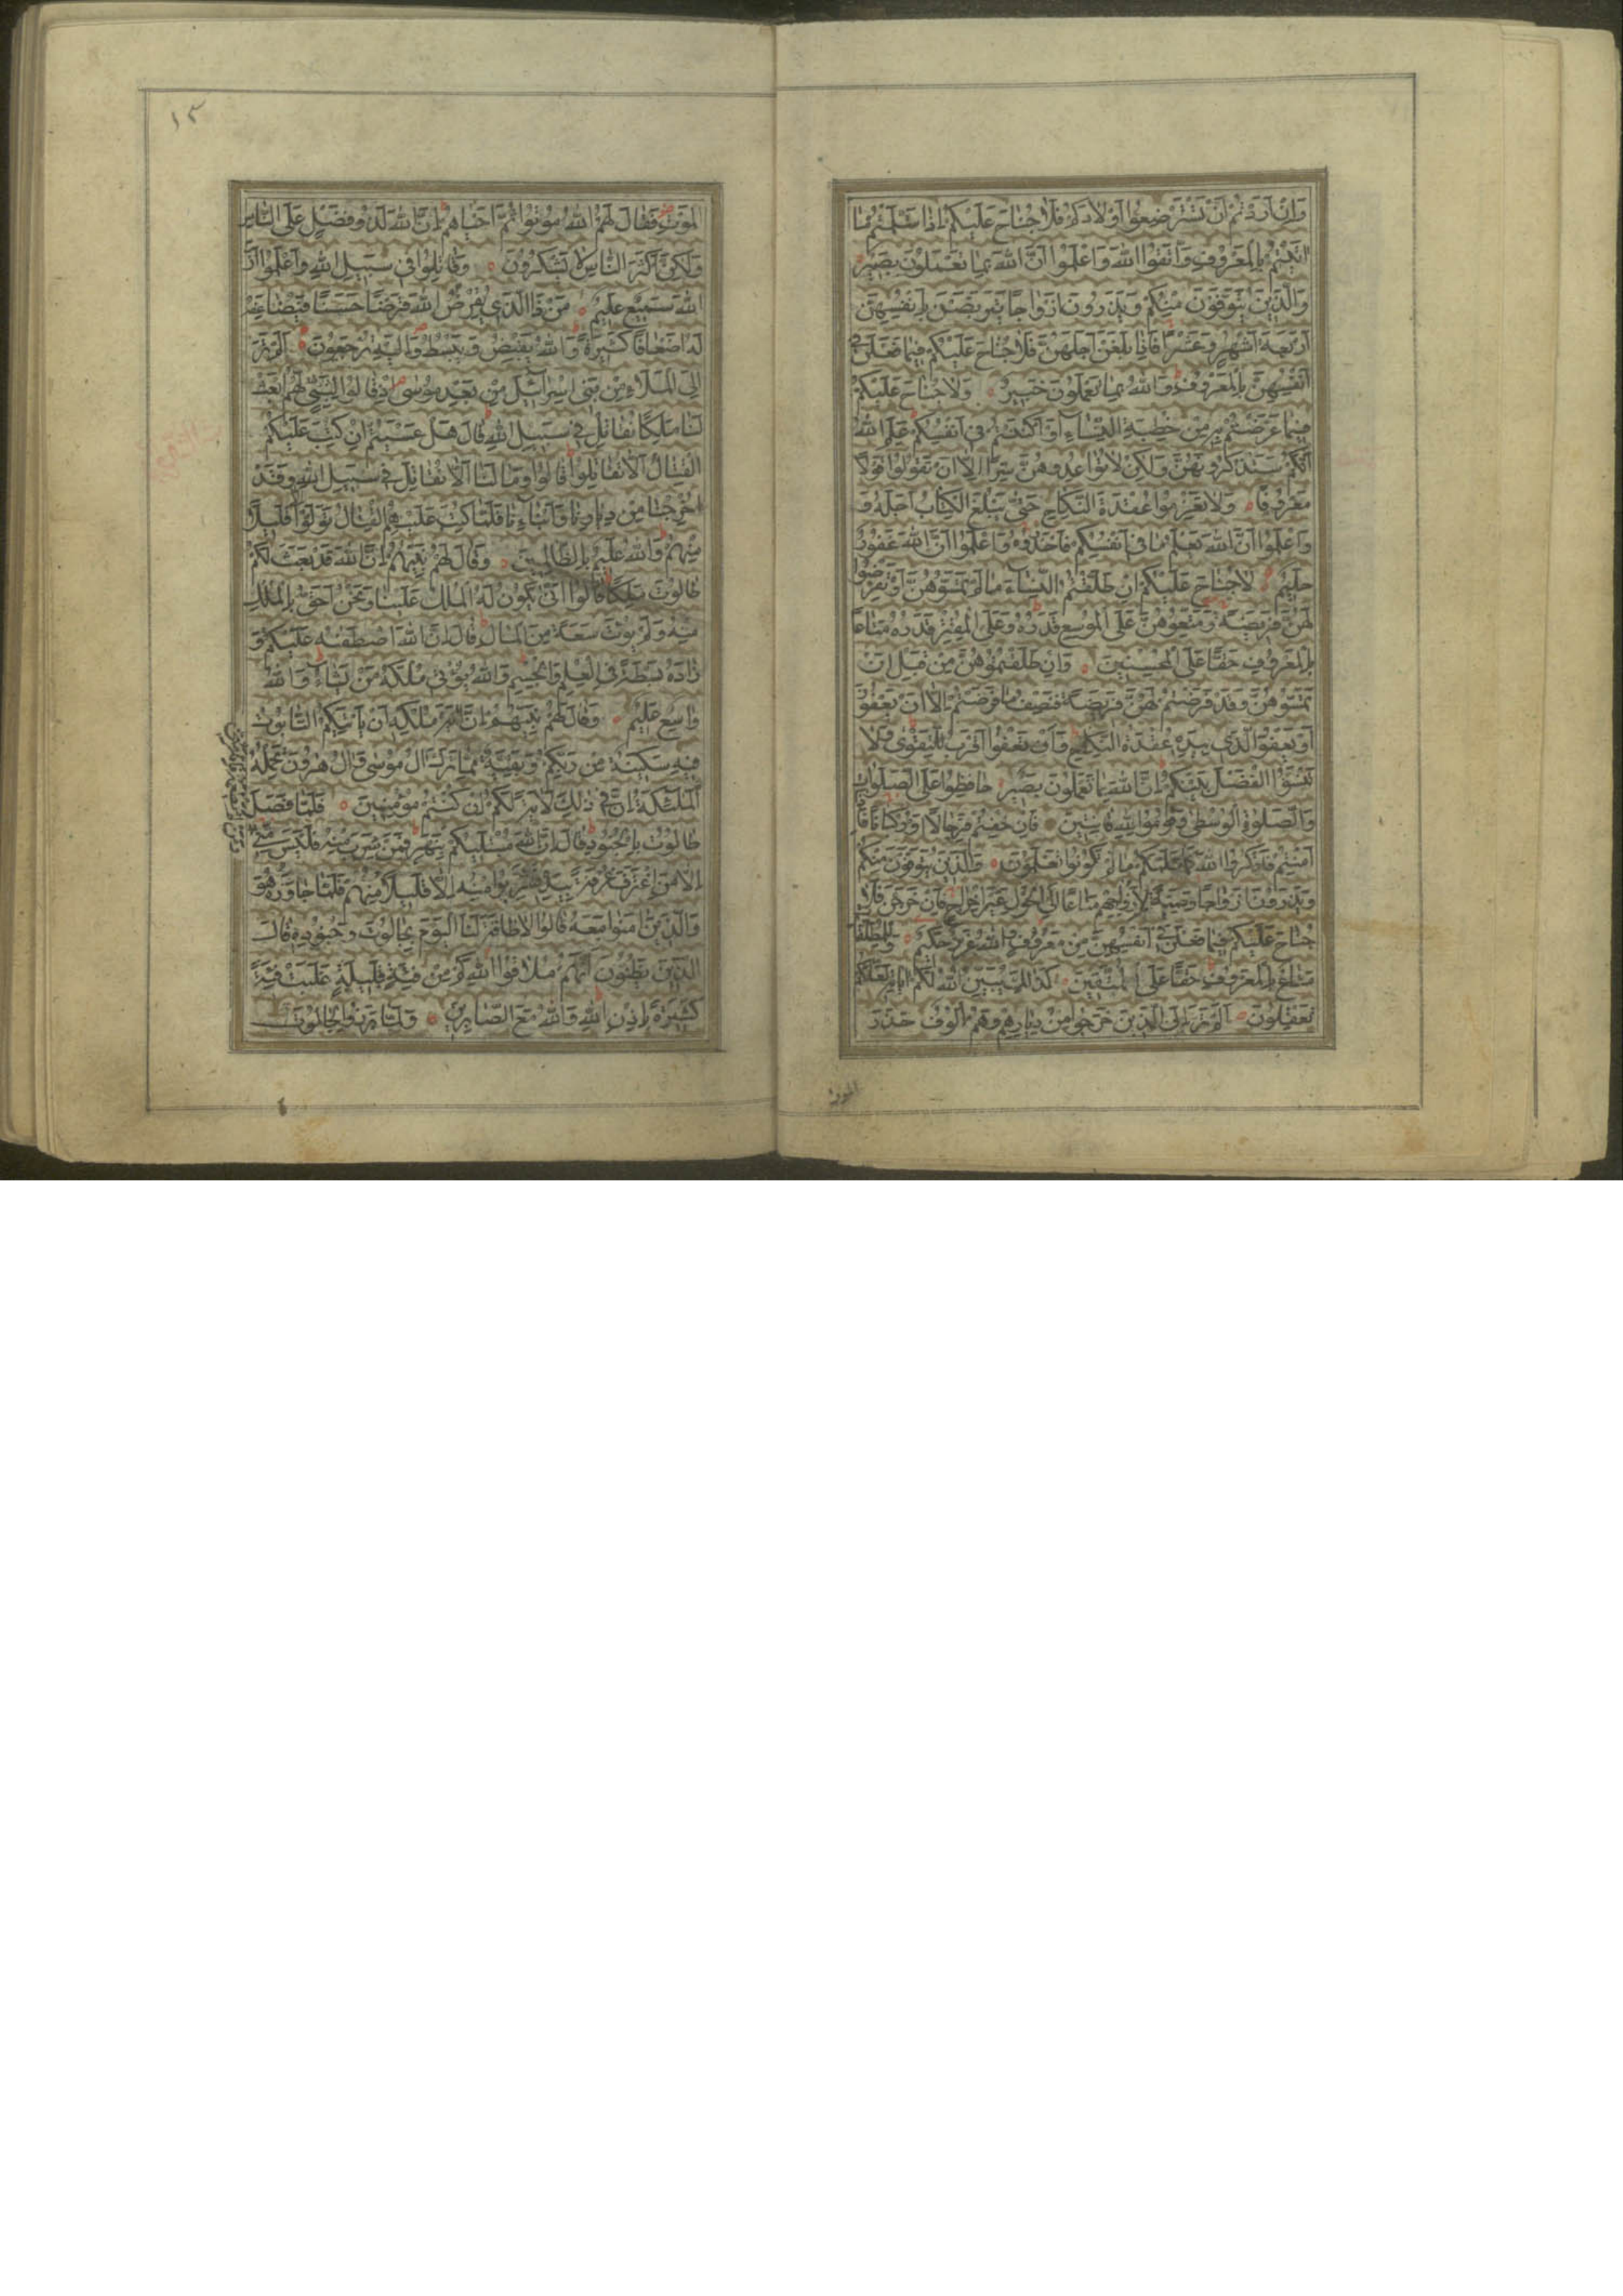 وَاِنْ اَرَدْتُمْ اَنْ تَسْتَرْضِعُوا اَوْلَادَكُمْ فَلَا جُنَاحَ عَلَيْكُمْ اِذَا سَلَّمْتُمْ مَا
اٰتَيْتُمْ بِالْمَعْرُوفِ وَاتَّقُوا اللهَ وَاعْلَمُوا اَنَّ اللهَ بِمَا تَعْمَلُونَ بَصِيرٌ
وَالَّذِينَ يُتَوَفَّوْنَ مِنْكُمْ وَيَذَرُونَ اَزْوَاجًا يَتَرَبَّصْنَ بِاَنْفُسِهِنَّ
اَرْبَعَةَ اَشْهُرٍ وَعَشْرًا فَاِذَا بَلَغْنَ اَجَلَهُنَّ فَلَا جُنَاحَ عَلَيْكُمْ فِيمَا فَعَلْنَ فِي
اَنْفُسِهِنَّ بِالْمَعْرُوفِ وَاللهُ بِمَا تَعْمَلُونَ خَبِيرٌ وَلَا جُنَاحَ عَلَيْكُمْ
فِيمَا عَرَّضْتُمْ بِهِ مِنْ خِطْبَةِ النِّسَاءِ اَوْ اَكْنَنْتُمْ فِي اَنْفُسِكُمْ عَلِمَ اللهُ
اَنَّكُمْ سَتَذْكُرُونَهُنَّ وَلٰكِنْ لَا تُوَاعِدُوهُنَّ سِرًّا اِلَّا اَنْ تَقُولُوا قَوْلًا
مَعْرُوفًا وَلَا تَعْزِمُوا عُقْدَةَ النِّكَاحِ حَتّٰى يَبْلُغَ الْكِتَابُ اَجَلَهُ وَ
وَاعْلَمُوا اَنَّ اللهَ يَعْلَمُ مَا فِي اَنْفُسِكُمْ فَاحْذَرُوهُ وَاعْلَمُوا اَنَّ اللهَ غَفُورٌ
حَلِيمٌ لَا جُنَاحَ عَلَيْكُمْ اِنْ طَلَّقْتُمُ النِّسَاءَ مَا لَمْ تَمَسُّوهُنَّ اَوْ تَفْرِضُوا
لَهُنَّ فَرِيضَةً وَمَتِّعُوهُنَّ عَلَى الْمُوسِعِ قَدَرُهُ وَعَلَى الْمُقْتِرِ قَدَرُهُ مَتَاعًا
بِالْمَعْرُوفِ حَقًّا عَلَى الْمُحْسِنِينَ وَاِنْ طَلَّقْتُمُوهُنَّ مِنْ قَبْلِ اَنْ
تَمَسُّوهُنَّ وَقَدْ فَرَضْتُمْ لَهُنَّ فَرِيضَةً فَنِصْفُ مَا فَرَضْتُمْ اِلَّا اَنْ يَعْفُونَ
اَوْ يَعْفُوَا الَّذِي بِيَدِهِ عُقْدَةُ النِّكَاحِ وَاَنْ تَعْفُوا اَقْرَبُ لِلتَّقْوٰى وَلَا
تَنْسَوُا الْفَضْلَ بَيْنَكُمْ اِنَّ اللهَ بِمَا تَعْمَلُونَ بَصِيرٌ حَافِظُوا عَلَى الصَّلَوَاتِ
وَالصَّلٰوةِ الْوُسْطٰى وَقُومُوا لِلهِ قَانِتِينَ فَاِنْ خِفْتُمْ فَرِجَالًا اَوْ رُكْبَانًا فَاِذَا
اَمِنْتُمْ فَاذْكُرُوا اللهَ كَمَا عَلَّمَكُمْ مَا لَمْ تَكُونُوا تَعْلَمُونَ وَالَّذِينَ يُتَوَفَّوْنَ مِنْكُمْ
وَيَذَرُونَ اَزْوَاجًا وَصِيَّةً لِاَزْوَاجِهِمْ مَتَاعًا اِلَى الْحَوْلِ غَيْرَ اِخْرَاجٍ فَاِنْ خَرَجْنَ فَلَا
جُنَاحَ عَلَيْكُمْ فِيمَا فَعَلْنَ فِي اَنْفُسِهِنَّ مِنْ مَعْرُوفٍ وَاللهُ عَزِيزٌ حَكِيمٌ وَلِلْمُطَلَّقَاتِ
مَتَاعٌ بِالْمَعْرُوفِ حَقًّا عَلَى الْمُتَّقِينَ كَذٰلِكَ يُبَيِّنُ اللهُ لَكُمْ اٰيَاتِهِ لَعَلَّكُمْ
تَعْقِلُونَ اَلَمْ تَرَ اِلَى الَّذِينَ خَرَجُوا مِنْ دِيَارِهِمْ وَهُمْ اُلُوفٌ حَذَرَ
الموت
١٥
الْمَوْتِ فَقَالَ لَهُمُ اللهُ مُوتُوا ثُمَّ اَحْيَاهُمْ اِنَّ اللهَ لَذُو فَضْلٍ عَلَى النَّاسِ
وَلٰكِنَّ اَكْثَرَ النَّاسِ لَا يَشْكُرُونَ وَقَاتِلُوا فِي سَبِيلِ اللهِ وَاعْلَمُوا اَنَّ
اللهَ سَمِيعٌ عَلِيمٌ مَنْ ذَا الَّذِي يُقْرِضُ اللهَ قَرْضًا حَسَنًا فَيُضَاعِفَهُ
لَهُ اَضْعَافًا كَثِيرَةً وَاللهُ يَقْبِضُ وَيَبْسُطُ وَاِلَيْهِ تُرْجَعُونَ اَلَمْ تَرَ
اِلَى الْمَلَاءِ مِنْ بَنِي اِسْرَائِيلَ مِنْ بَعْدِ مُوسٰى اِذْ قَالُوا لِنَبِيٍّ لَهُمُ ابْعَثْ
لَنَا مَلِكًا نُقَاتِلْ فِي سَبِيلِ اللهِ قَالَ هَلْ عَسَيْتُمْ اِنْ كُتِبَ عَلَيْكُمُ
الْقِتَالُ اَلَّا تُقَاتِلُوا قَالُوا وَمَا لَنَا اَلَّا نُقَاتِلَ فِي سَبِيلِ اللهِ وَقَدْ
اُخْرِجْنَا مِنْ دِيَارِنَا وَاَبْنَاءِنَا فَلَمَّا كُتِبَ عَلَيْهِمُ الْقِتَالُ تَوَلَّوْا اِلَّا قَلِيلًا
مِنْهُمْ وَاللهُ عَلِيمٌ بِالظَّالِمِينَ وَقَالَ لَهُمْ نَبِيُّهُمْ اِنَّ اللهَ قَدْ بَعَثَ لَكُمْ
طَالُوتَ مَلِكًا قَالُوا اَنّٰى يَكُونُ لَهُ الْمُلْكُ عَلَيْنَا وَنَحْنُ اَحَقُّ بِالْمُلْكِ
مِنْهُ وَلَمْ يُؤْتَ سَعَةً مِنَ الْمَالِ قَالَ اِنَّ اللهَ اصْطَفٰيهُ عَلَيْكُمْ وَ
زَادَهُ بَسْطَةً فِي الْعِلْمِ وَالْجِسْمِ وَاللهُ يُؤْتِي مُلْكَهُ مَنْ يَشَاءُ وَاللهُ
وَاسِعٌ عَلِيمٌ وَقَالَ لَهُمْ نَبِيُّهُمْ اِنَّ اٰيَةَ مُلْكِهِ اَنْ يَأْتِيَكُمُ التَّابُوتُ
فِيهِ سَكِينَةٌ مِنْ رَبِّكُمْ وَبَقِيَّةٌ مِمَّا تَرَكَ اٰلُ مُوسٰى وَاٰلُ هٰرُونَ تَحْمِلُهُ
الْمَلٰئِكَةُ اِنَّ فِي ذٰلِكَ لَاٰيَةً لَكُمْ اِنْ كُنْتُمْ مُؤْمِنِينَ فَلَمَّا فَصَلَ
طَالُوتُ بِالْجُنُودِ قَالَ اِنَّ اللهَ مُبْتَلِيكُمْ بِنَهَرٍ فَمَنْ شَرِبَ مِنْهُ فَلَيْسَ مِنِّي
اِلَّا مَنِ اغْتَرَفَ غُرْفَةً بِيَدِهِ فَشَرِبُوا مِنْهُ اِلَّا قَلِيلًا مِنْهُمْ فَلَمَّا جَاوَزَهُ هُوَ
وَالَّذِينَ اٰمَنُوا مَعَهُ قَالُوا لَا طَاقَةَ لَنَا الْيَوْمَ بِجَالُوتَ وَجُنُودِهِ قَالَ
الَّذِينَ يَظُنُّونَ اَنَّهُمْ مُلَاقُوا اللهِ كَمْ مِنْ فِئَةٍ قَلِيلَةٍ غَلَبَتْ فِئَةً
كَثِيرَةً بِاِذْنِ اللهِ وَاللهُ مَعَ الصَّابِرِينَ وَلَمَّا بَرَزُوا لِجَالُوتَ